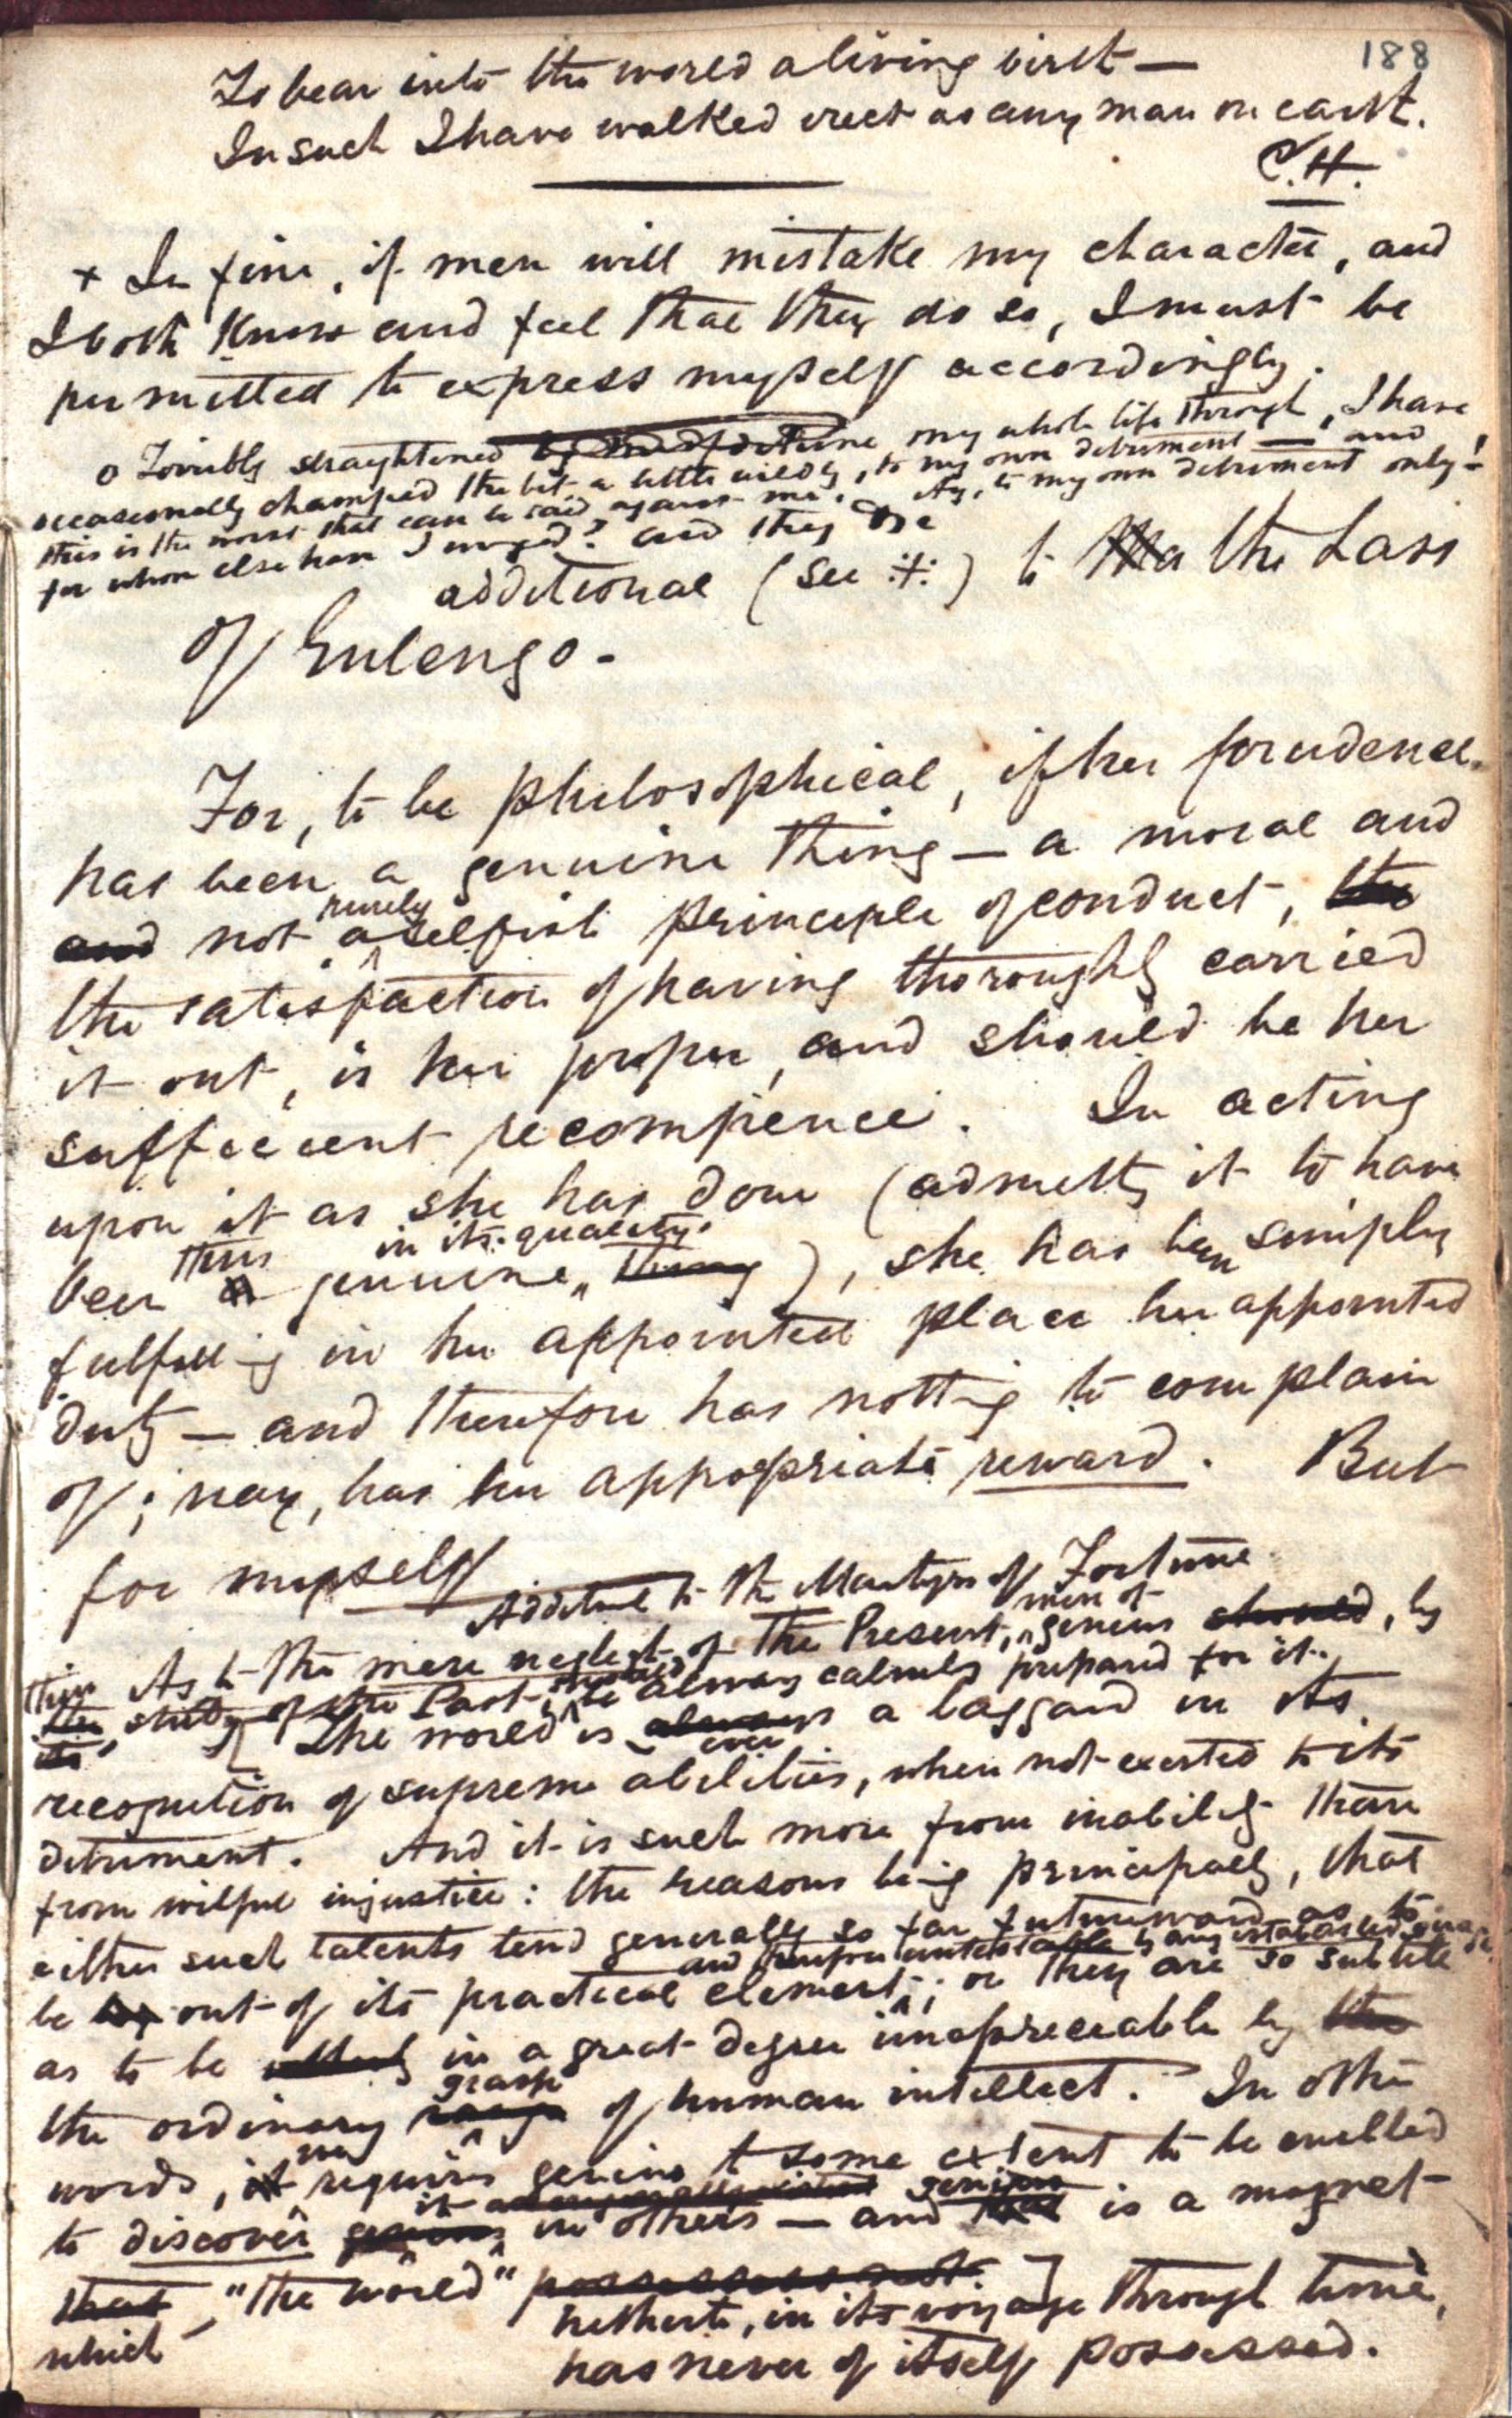 188
To bear into the world a living birth —
In such I have walked erect as any man on earth.
C.H.
+ In fine, if men will mistake my character, and
I both know and feel that they do so, I must be
permitted to express myself accordingly.
o Terribly straightened my whole life through, I have
occasionally champed the bit a little wildly, to my own detriment — and
this is the worst that can be said against me. Ay, to my own detriment only —
for whom else have I wronged? and they the
additional (see ) to the Lass
of Eulengo.
For, to be philosophical, if her prudence
has been a genuine thing — a moral and
and not a purely selfish principle of conduct, the
the satisfaction of having thoroughly carried
it out, is her proper, and should be her
suffecient recompence. In acting
upon it as she has done (admittg it to have
been thus a genuine in its quality thing), she has been simply
fulfilling in her appointed place her appointed
duty — and therefore has nothing to complain
of; nay, has her appropriate reward. But
for myself
Additnal to the Martyrs of Fortune
As to the mere neglect of The Present, men of genius should, by
their study of the Past, should be always calmly prepared for it.
its [ The world is always ever a laggard in its
recognition of supreme abilities, when not exerted to its
detriment. And it is such more from inability than
from wilful injustice: the reasons being principally, that
either such talents tend generally so far futureward as to
be out of its practical element, and therefore untestable by any established usage; or they are so subtile
as to be in a great degree inappreciable by the
the ordinary range grasp of human intellect. In other
words, it requires genius to some extent to be enabled
to discover genius it in others — and that genius is a magnet
that "the world" possesses not. ]
which hitherto, in its voyage through time,
has never of itself possessed.